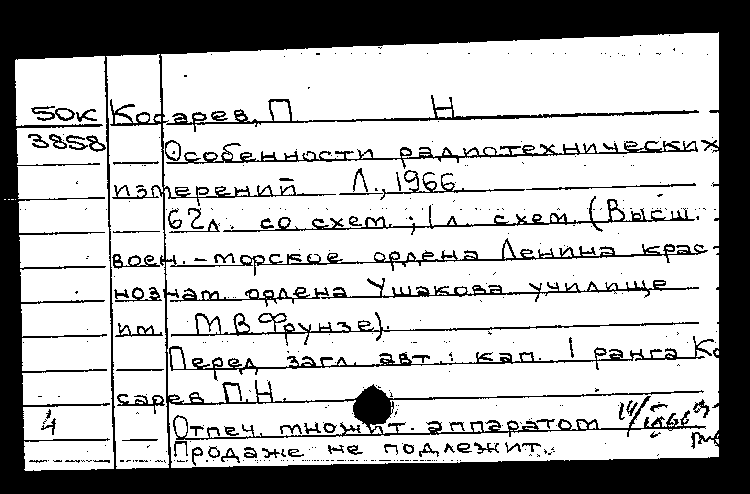 50К Косарев, П Н
3858
Особенности радиотехнических
измерений Л., 1966.
62л. со схем.; 1 л. схем. (Высш.
воен.-морское ордена Ленина крас-
нознам. ордена Ушакова училище
им. М.В Фрунзе).
Перед загл. авт.: кап. 1 ранга Ко
сарев П.Н.
4 Отпеч. множит. аппаратом
Продаже не подлежит.